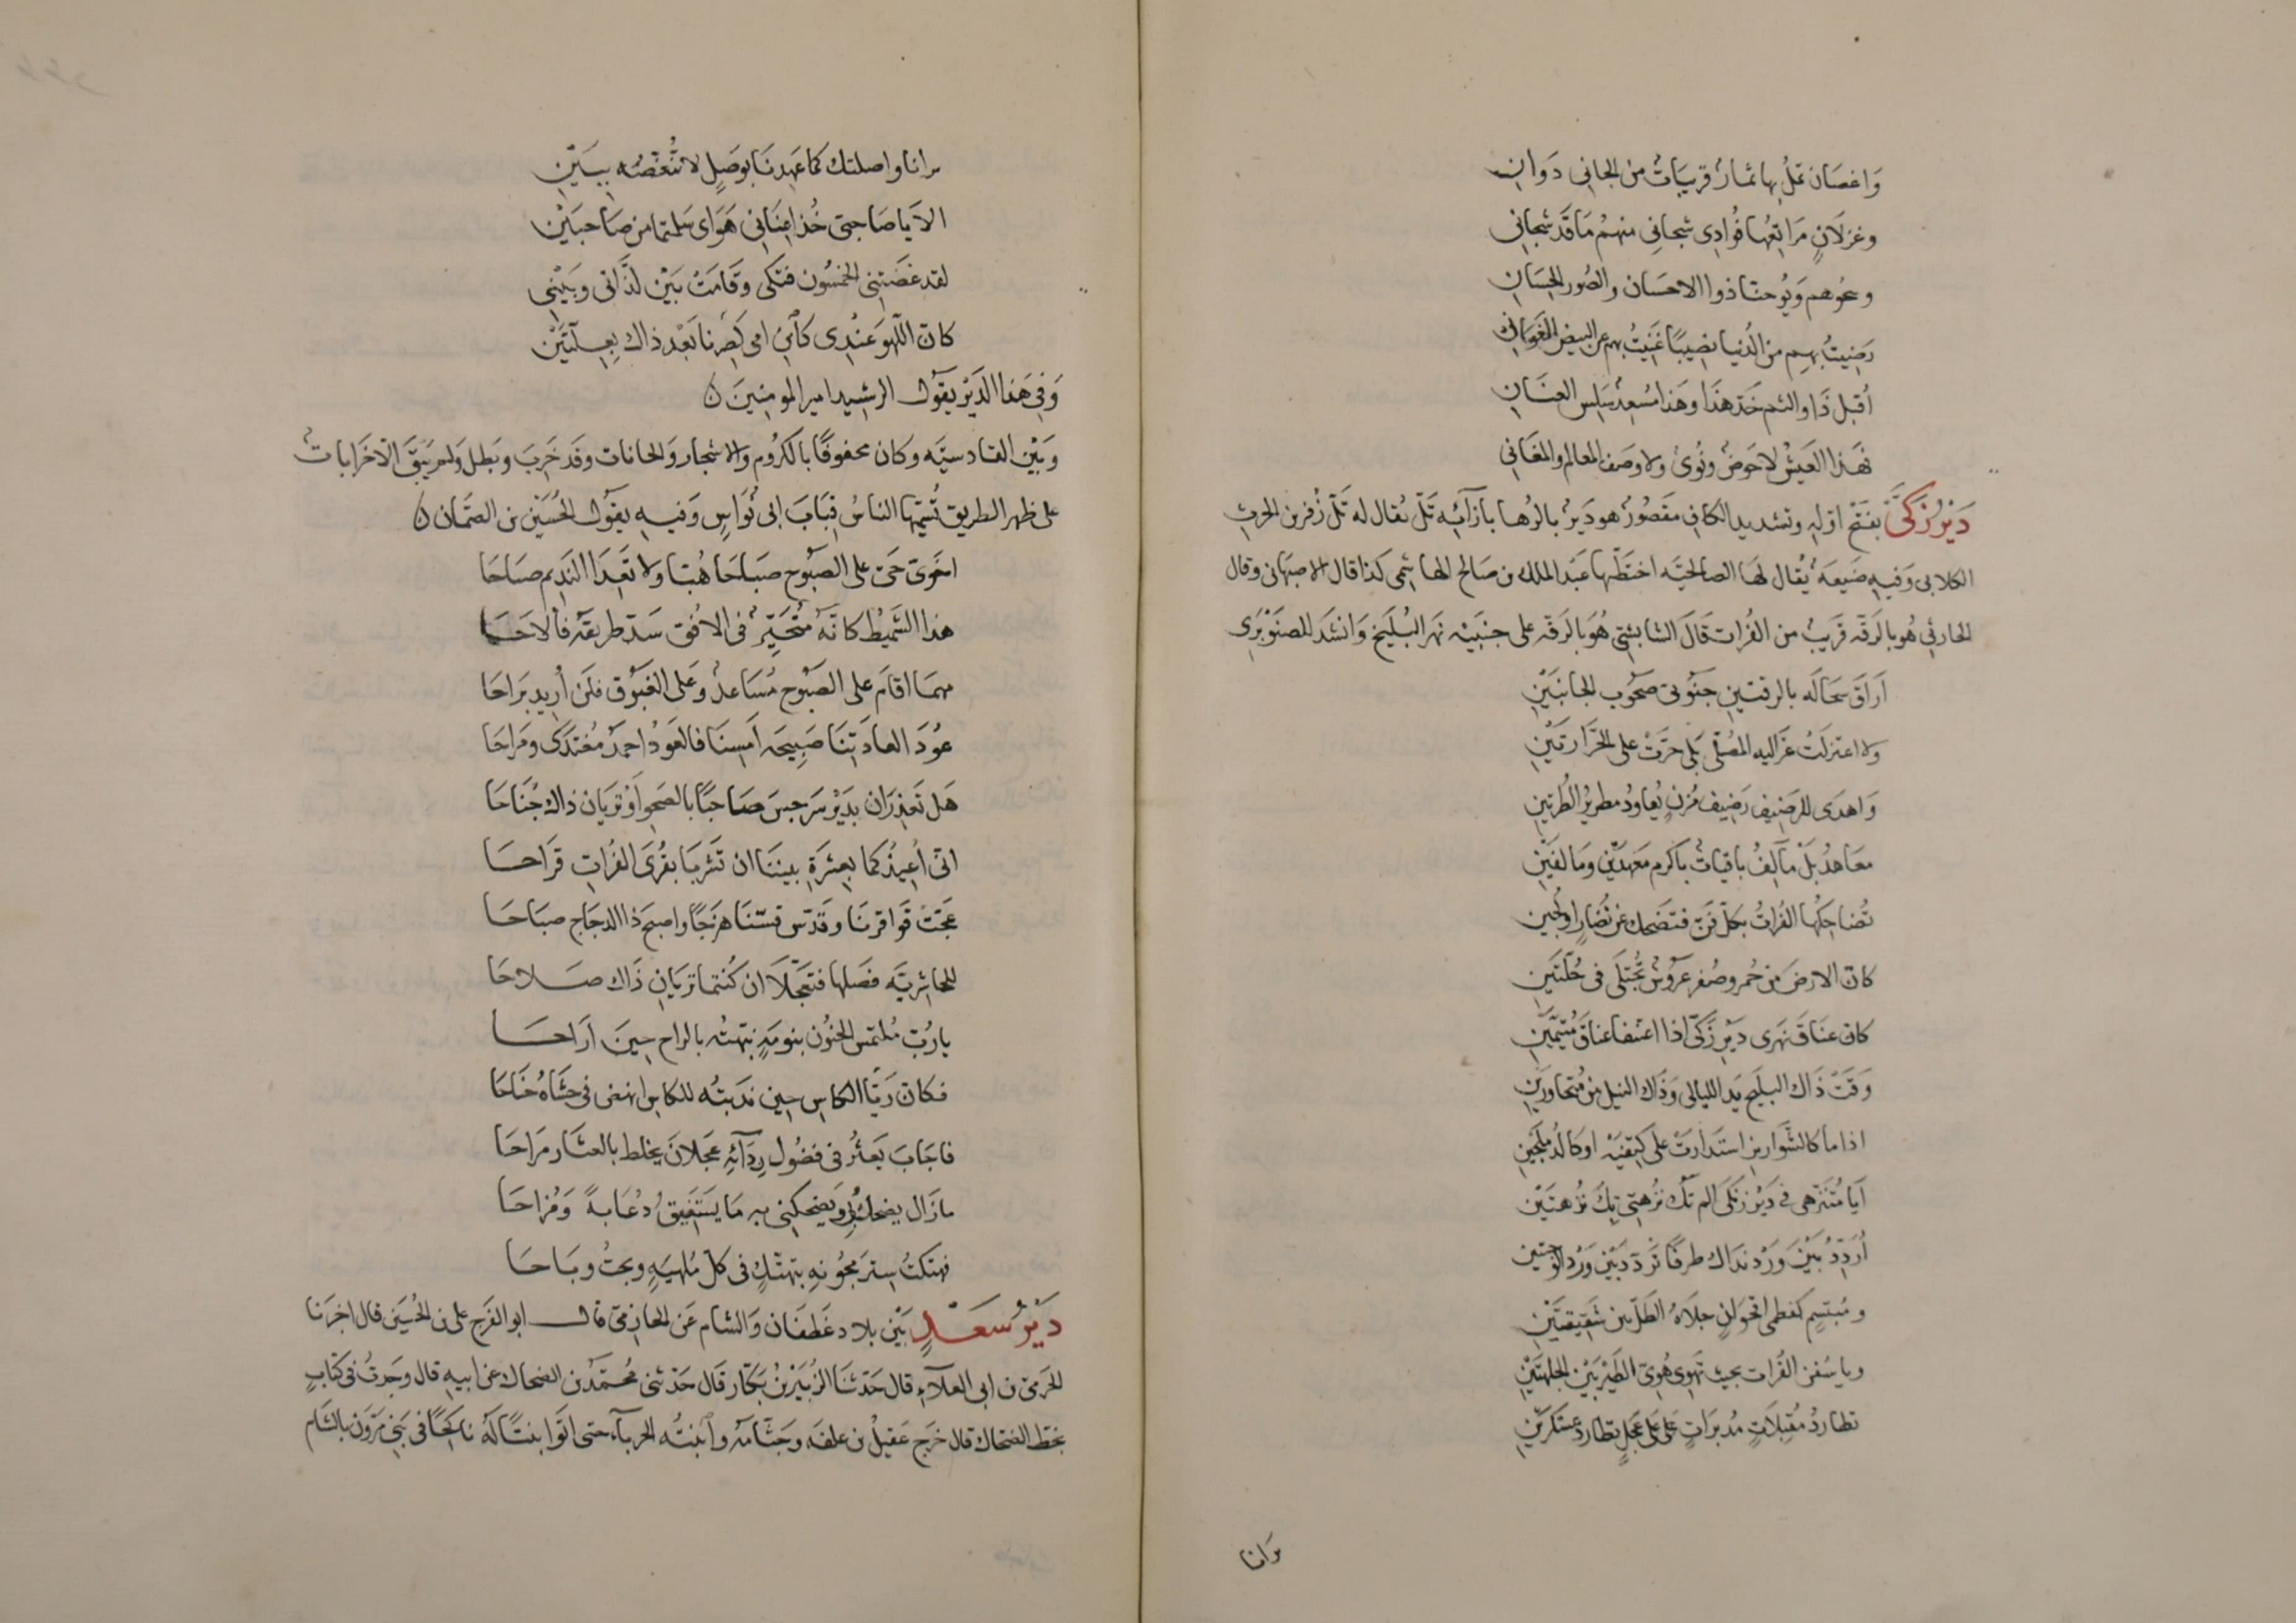 وَاغصَان تميلُ بها ثمارٌ قريبَاتٌ من الجاني دَوانِ
وغزلَانٍ مَرَاتِعُها فُؤادِى شجانى منهُمُ مَا قَد شجانى
وَيُوحنّا ذوا الاحسَان والصُور الحِسَانِ
رَضِيتُ بهِم من الدُنيا نصِيبًا غَنِيتُ بهم عن البيض الغَوانى
أُقبّل ذَا والثم خَدّ هذَا وهَذا مُسعِدٌ سَلِس العِنَانِ
فهَذا العَيشُ لا حَوضٌ ونُؤىٌ ولا وصَف المعالم والمغَانى
دَيرُ زَكّى بفَتْح اوّله وتشديد الكاف مقصُورٌ هو دَيرٌ بالرُها بازآئِه تَلّ يُقال له تَلّ زُفَر بن الحرث
الكلابى وَفيهِ ضَيعَةٌ يُقال لهَا الصالحيَّه اختَطّها عَبد الملك بن صَالح الهاشمى كذا قال الاصبهانى وقال
الخالدى هُو بالرَقّه قَريبٌ من الفُرات قَالَ الشابشتى هُو بالرَقّه على جنبَيْه نهر البُلَيخ وَانشَد للصنَوْبَرِى
اَرَاقَ سجَالَه بالرقتينِ جَنُوبىّ صحُوب الجانبَيْنِ
ولا اعتزلَتْ عزاليه المُصَلّى بَلى خرّتْ على الخرّارتَيْنِ
وَاهدَى للرَضِيف رَضِيف مُزنٍ يُعاودُ مطريرُ الطُرّتينِ
معَاهدُ بَلْ مآلِفُ باقياتٌ باكرم مَعْهدَيْنِ ومَالَفَيْنِ
تُضَاحِكُها الفُراتُ بكلّ فَنّ فتضحك عن نُضَارٍ اولُجينِ
كانّ الارضَ من حُمرٍ وصُفرٍ عَرُوسٌ تُجْتَلَى فى حُلّتَينِ
كانّ عنَاقَ نهرَى دَيرِ زَكّى اذا اعتنقَا عناقُ مُتَيَّمَيْنِ
وَقَتْ ذَاك البليخَ يَد الليالى وَذَاك النيل من مُتجَاوِرَينِ
اذا ما كالشَّوارِين استَدارَتْ على كتِفَيْه او كالدُملجَينِ
اَيَا مُتَنَزَّهى فى دَيْر زَكّى الم تَكُ نُزهَتى بِكَ نُزهتَيْنِ
أُرَدِّدُ بَيْنَ وَرْد نَدَاك طرفًا تَردّدَ بَيْنَ وَرْد الوَجنتين
ومُبتسِمٍ كنظمى اقحوَانٍ جلَاهُ الطَلُّ بين شَقِيقتَيْنِ
ويا سُفنَ الفُرات بحيث تَهوِى هُوِىَّ الطَيْر بَيْن الجلهتَيْنِ
تطاردُ مُقبِلَاتٍ مُدبَراتٍ على على عَجلٍ تطاردَ عسْكَرَيْنِ
تَرانا
ترانا واصلتك كما عَهِدنَا بوَصلٍ لا تنُغّصُه بِبَيْنِ
الاَ يا صَاحبىّ خُذا عِنَانى هَوَاى سَلمتُما من صَاحبَيْنِ
لقد غصَبَتنى الخمسُون فتكى وقَامَتْ بَيْن لذّاتى وبَيْنِى
كانّ اللّهوَ عنْدِى كابْنِ امى فَصِرنا بَعْد ذاك بِعِلّتَيْنِ
وَفِى هَذا الدَيْرِ يقُول الرشيد امير المومنِينَ ن
وَبَيْن القادسيَّه وكان محفوفًا بالكُروم والاشجار والحانات وقد خَرِبَ وبَطل ولم يَبَقَ الا خَرَابات
على ظهر الطريق تُسَمّيها الناسُ قِبَابَ ابى نُوَاسِ وَفيهِ يقُول الحُسَيْن بن الضّحاك ن
اخوَىّ حَىّ على الصَبُوح صبَاحَا هُبّا ولا تَعِدَا النَدِيم صبَاحَا
هذا الشَمِيطُ كانَّه مُتحَيِّرٌ فى الافُق سَدّ طريقه فألاحَا
مهمَا اقامَ على الصَبُوح مُسَاعدٌ وعَلى الغبُوق فلَن أُريد بَراحَا
عُودَا لعادَتِنَا صَبِيحَه اَمسِنَا فالعَودُ احمدُ مُغتَدىً ومَراحَا
هَل تَعذِرَان بدَيْر سَرجِسَ صَاحبًا بالصَحوِ أوْ ترَيان ذاك جُنَاحَا
انّى أُعِيذُكما بعِشرَةِ بينَنَا ان تَشرَبَا بقُرَى الفُراتِ قرَاحَا
عجّتْ قوَاقزنَا وقَدّس قسّنَا هزَجًا واصبحَ ذا الدجَاج صبَاحَا
للجاشِريَّه فضلها فتعَجّلَا ان كُنتما ترَيانِ ذَاك صلَاحَا
يا رُبّ مُلتمس الجنُون بنومَةٍ نبّهتُه بالراح حِينَ اَراحَا
فكانّ رَيّا الكاس حين نَدَبتُه للكاس انهضَ فى حشَاهُ جَناحَا
فاجَابَ يَعثُرُ فى فضُول رِدَآئِهِ عَجلانَ يخلط بالعثَار مَراحَا
ما زَال يضحك بى وَيضحكنى به مَا يَستَفِيقُ دُعَابةً وَمُزاحَا
فهتكتُ سِترَ مجُونهِ بتهتّكٍ فى كلّ مُلهيَةٍ وبحتُ وبَاحَا
دَيْرُ سَعَـدٍ بَيْن بلاد غَطفَان والشام عَن الحازِمىّ قال ابو الفَرج على بن الحُسَين قال اخبَرنا
الحَرَمىّ بن ابى العلآءِ قال حَدّثنَا الزُبَيْر بن بكّار قال حَدّثنى مُحمّد بن الضحاك عن ابيهِ قال وجَدتُ فى كتابٍ
بخَطّ الضحاك قال خرَج عَقيلُ بن علفَه وجَثّامَه وابنتُه الجربآء حتى اتَوا بنتًا لَهُ ناكحًا فى بَنى مَرَوَن بالشَام